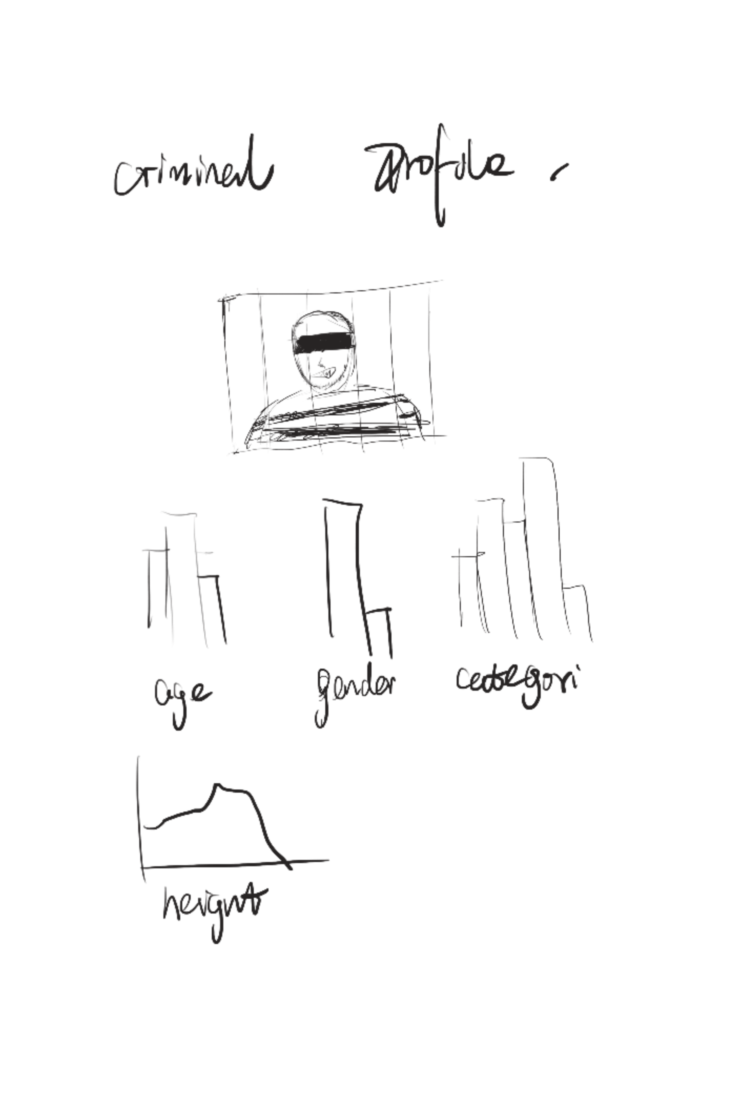 criminal profile
age gender categori
height